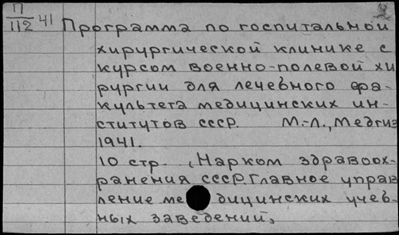 П
112 41
Программа по госпитальной
хирургической клинике с
курсом военно-полевой хи
рургии для лечебного фа-
культета медицинских ин-
ститутов СССР. М.-Л., Медгиз
1941.
10 стр. (Нарком здравоох-
ранения СССР. Главное управ
ление медицинских учеб-
ных заведений,